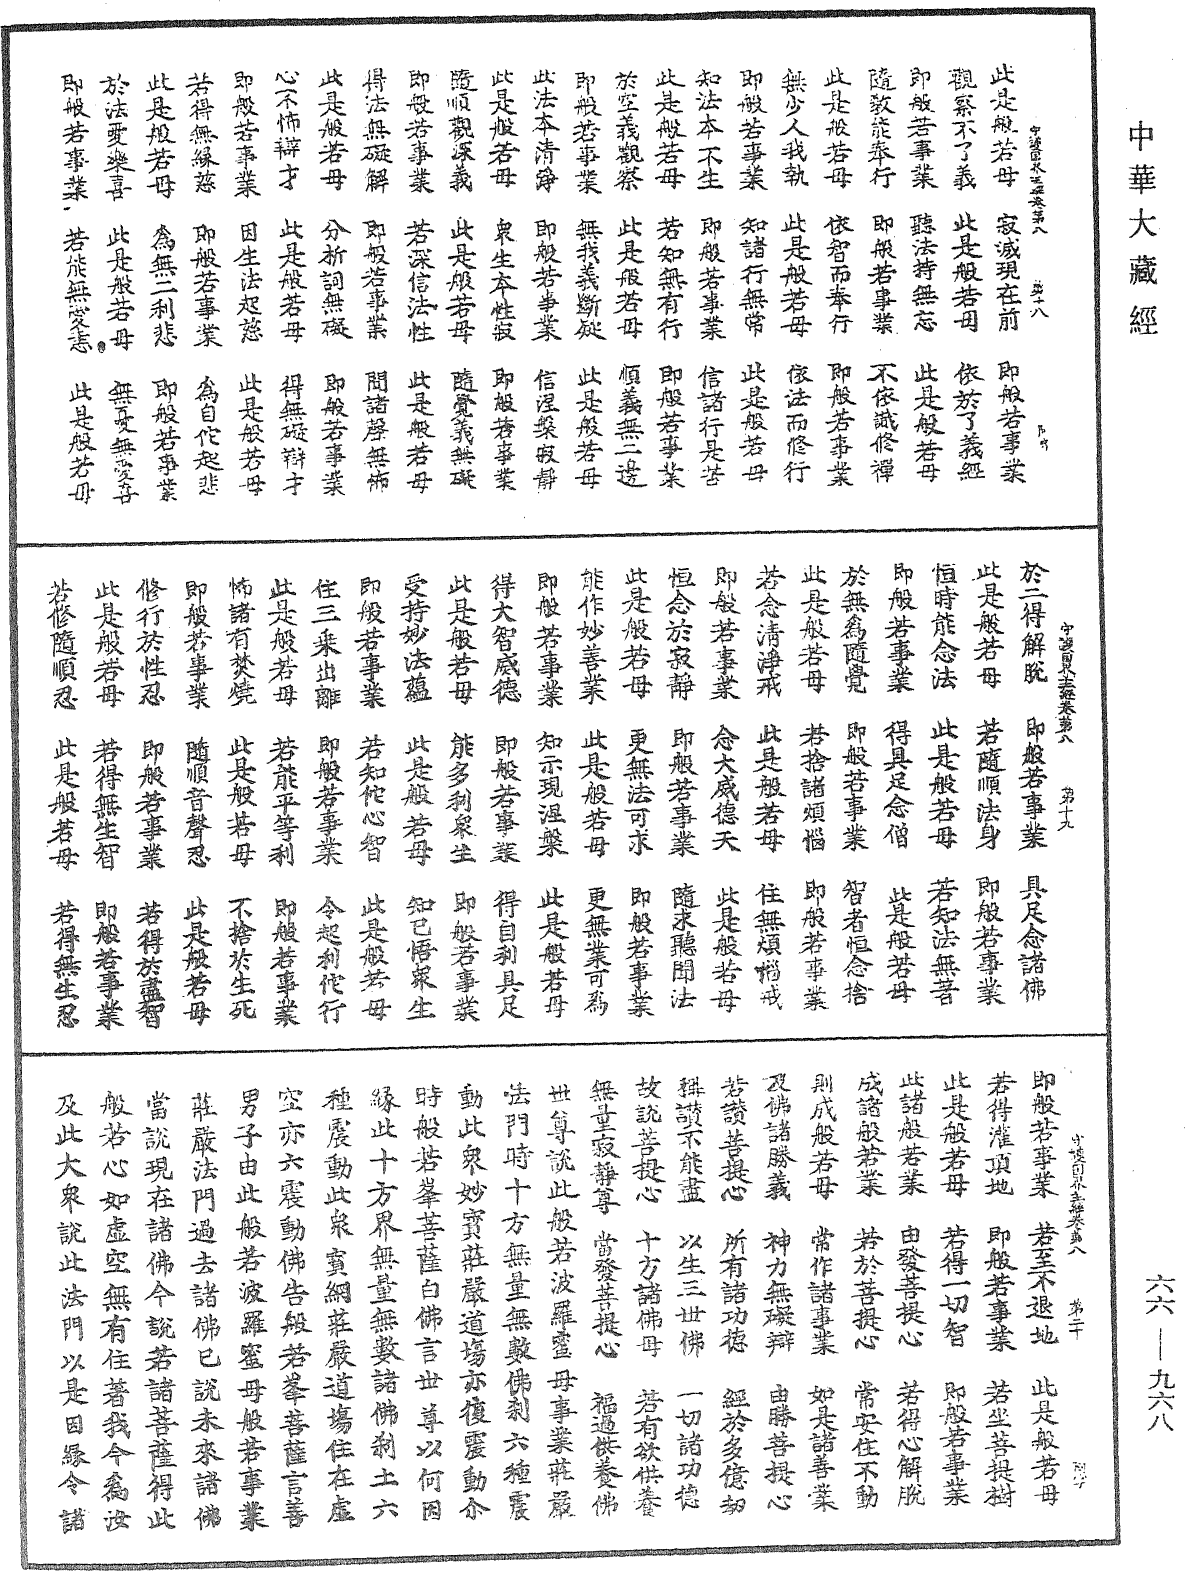 中華大藏經
守護國界主經卷第八　第十八
此是般若母　寂滅現在前　即般若事業
觀察不了義　此是般若母　依於了義經
即般若事業　聽法持無忘　此是般若母
隨教能奉行　即般若事業　不依識修禪
此是般若母　依智而奉行　即般若事業
無少人我執　此是般若母　依法而修行
即般若事業　知諸行無常　此是般若母
知法本不生　即般若事業　信諸行是苦
此是般若母　若知無有行　即般若事業
於空義觀察　此是般若母　順義無二邊
即般若事業　無我義斷疑　此是般若母
此法本清淨　即般若事業　信涅槃寂靜
此是般若母　衆生本性寂　即般若事業
隨順觀深義　此是般若母　隨覺義無礙
即般若事業　若深信法性　此是般若母
得法無礙解　即般若事業　聞諸聲無怖
此是般若母　分析詞無礙　即般若事業
心不怖辯才　此是般若母　得無礙辯才
即般若事業　因生法起慈　此是般若母
若得無緣慈　即般若事業　為自佗起悲
此是般若母　為無二利悲　即般若事業
於法愛樂喜　此是般若母　無憂無愛喜
即般若事業　若能無愛恚　此是般若母
守護國界主經卷第八　第十九
於二得解脫　即般若事業　具足念諸佛
此是般若母　若隨順法身　即般若事業
恒時能念法　此是般若母　若知法無著
即般若事業　得具足念僧　此是般若母
於無為隨覺　即般若事業　智者恒念捨
此是般若母　若捨諸煩惱　即般若事業
若念清淨戒　此是般若母　住無煩惱戒
即般若事業　念大威德天　此是般若母
恒念於寂靜　即般若事業　隨求聽聞法
此是般若母　更無法可求　即般若事業
能作妙善業　此是般若母　更無業可為
即般若事業　知示現涅槃　此是般若母
得大智威德　即般若事業　得自利具足
此是般若母　能多利衆生　即般若事業
受持妙法蘊　此是般若母　知已悟衆生
即般若事業　若知佗心智　此是般若母
住三乘出離　即般若事業　令起利佗行
此是般若母　若能平等利　即般若事業
怖諸有焚燒　此是般若母　不捨於生死
即般若事業　隨順音聲忍　此是般若母
修行於性忍　即般若事業　若得於盡智
此是般若母　若得無生智　即般若事業
若修隨順忍　此是般若母　若得無生忍
守護國界主經卷第八　第二十
即般若事業　若至不退地　此是般若母
若得灌頂地　即般若事業　若坐菩提樹
此是般若母　若得一切智　即般若事業
此諸般若業　由發菩提心　若得心解脫
成諸般若業　若於菩提心　常安住不動
則成般若母　常作諸事業　如是諸善業
及佛諸勝義　神力無礙辯　由勝菩提心
若讚菩提心　所有諸功德　經於多億劫
稱讚不能盡　以生三世佛　一切諸功德
故說菩提心　十方諸佛母　若有欲供養
無量寂靜尊　當發菩提心　福過供養佛
世尊說此般若波羅蜜母事業莊嚴
法門時十方無量無數佛刹六種震
動此衆妙寶莊嚴道場亦復震動尒
時般若峯菩薩白佛言世尊以何因
緣此十方界無量無數諸佛刹土六
種震動此衆寶網莊嚴道場住在虛
空亦六震動佛告般若峯菩薩言善
男子由此般若波羅蜜母般若事業
莊嚴法門過去諸佛已說未來諸佛
當說現在諸佛今說若諸菩薩得此
般若心如虛空無有住著我今為汝
及此大衆說此法門以是因緣令諸
六六—九六八